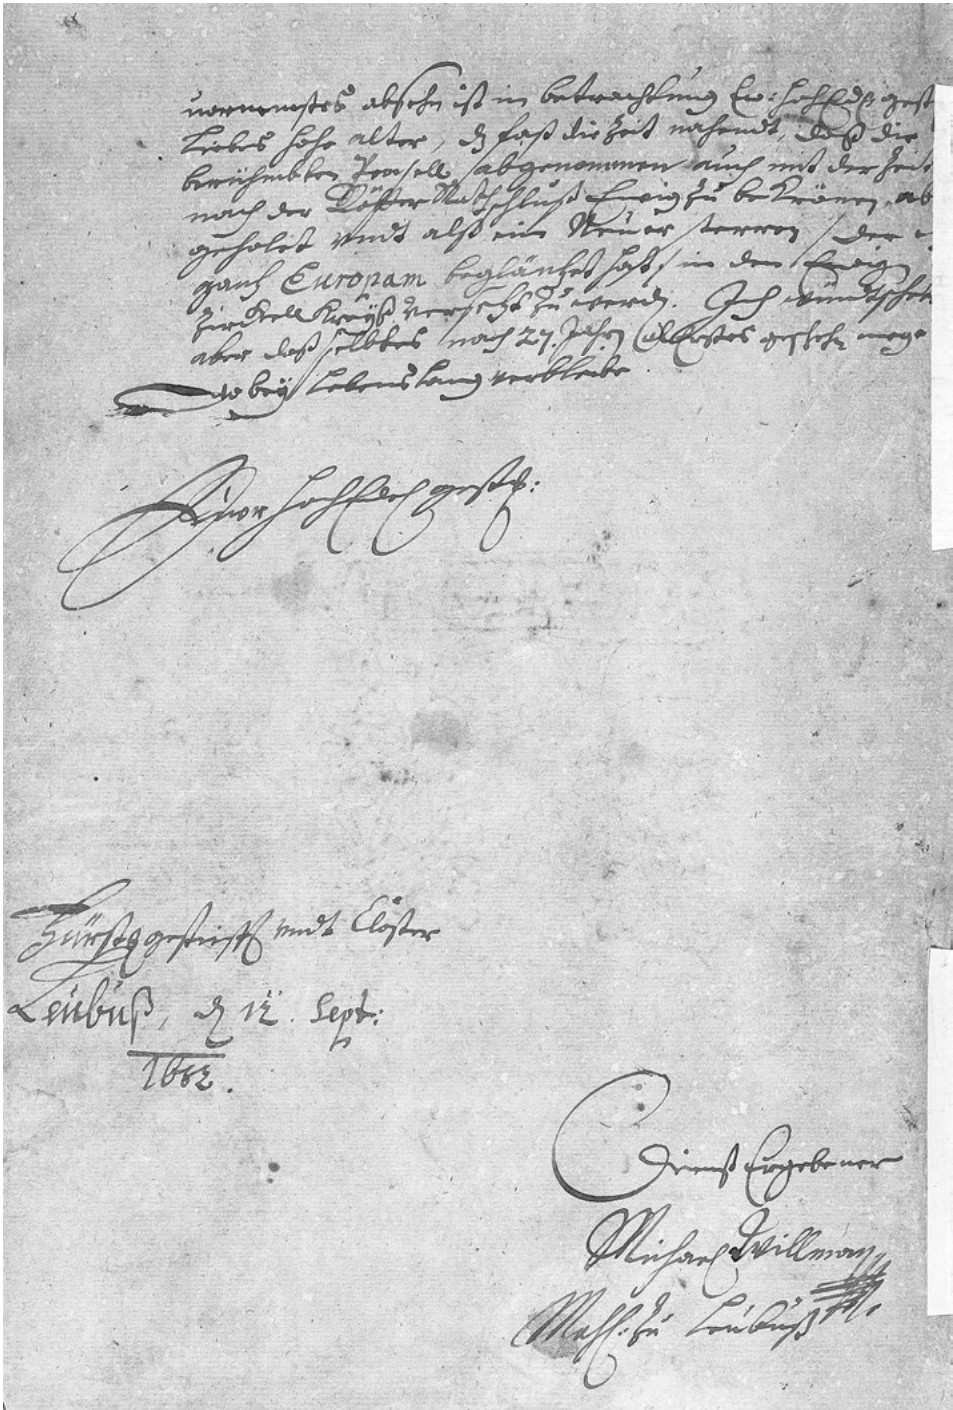 vornemstes absehn ist in betrachtung Ew: HochEdl: gest
Liebes hohe alter, dz fast die Zeit nahendt, daß die
berühmbten Pensell abgenommen auch mit der Zeit
nach der Götter Rathschluß Ewig zu bekrönen, ab
geholet vndt alß ein Neüer sterren / der
gantz Europam begläntzet hatt / in den Ewign
Zirckell Kreÿß versetzt zu werdn. Ich wündtsche
aber daß selbtes nach 27. Jahrn Erstes geschehn mege
wobeÿ Lebenslang verbleibe.
Ewer HochEdel gest:
Fürstl gestiefft vndt Closter
Leübüß, dz 12. Sept:
1682.
Dienst Ergebener
Michael Willman
Mahl: zu Leübüß